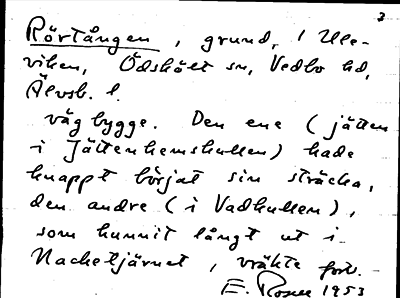 3
Rörtången, grund, i Ulle-
viken, Ödskölt sn, Vedbo hd,
Älvsb. l.
vägbygge. Den ene (jätten
i Jättenhemskullen) hade
knappt börjat sin sträcka,
den andre (i Vadkullen),
som hunnit långt ut i
Nacketjärnet, vräkte
E. 1953